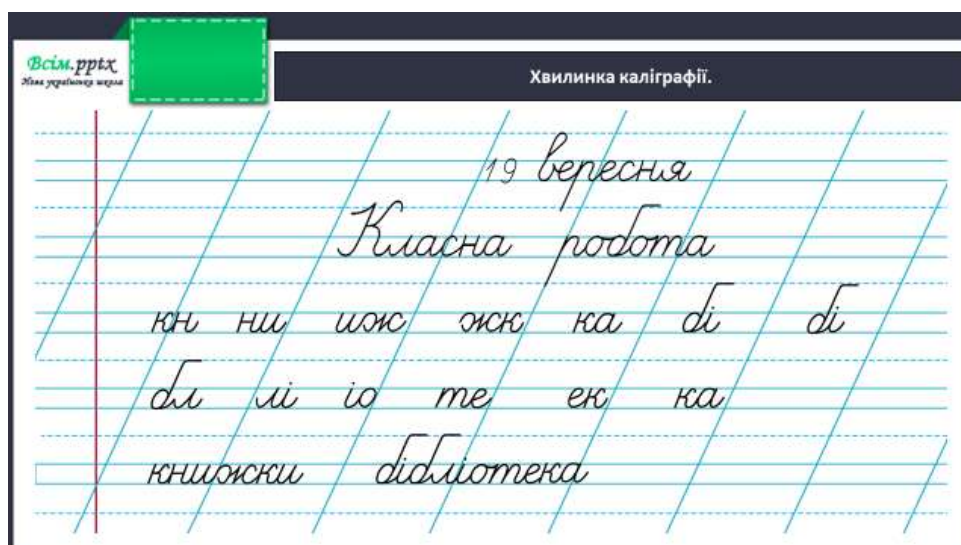 Всім.pptx
Нова українська школа
Хвилинка каліграфії.
19 вересня
Класна робота
кн ни иж жк ка бі бі
бл лі іо те ек ка
книжки бібліотека